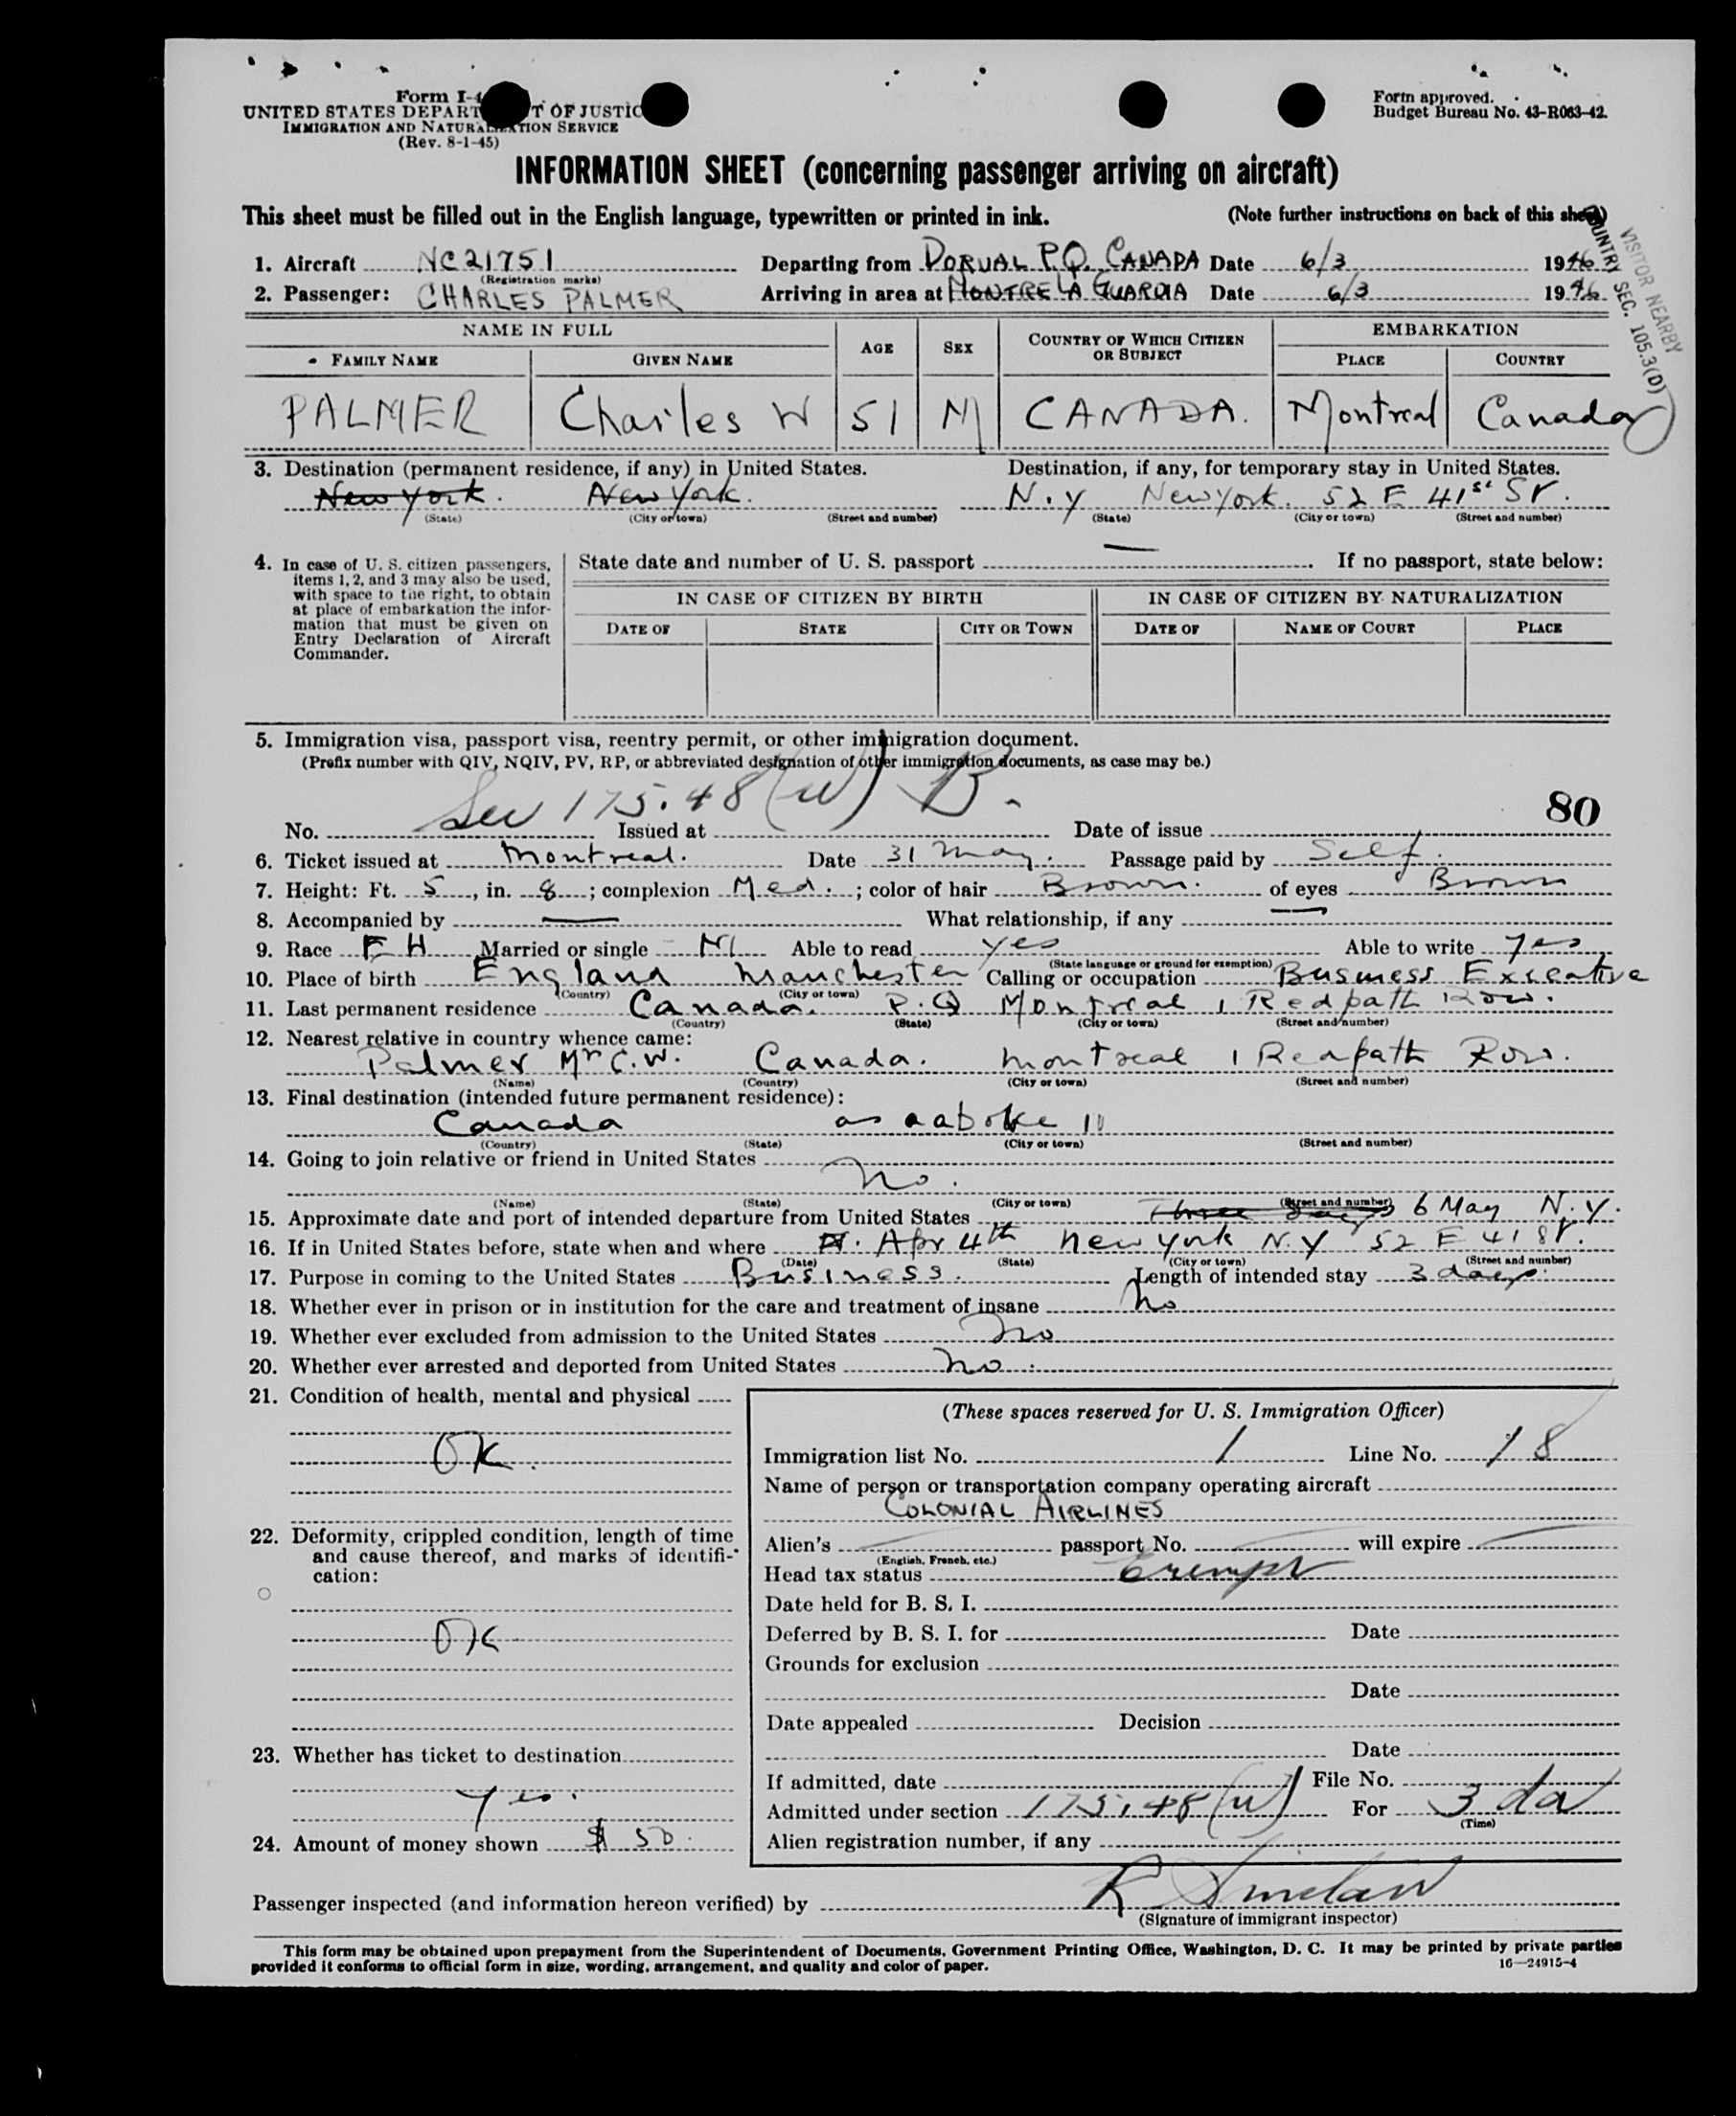 Form I-4
UNITED STATES DEPART T OF JUSTIC
IMMIGRATION AND NATURALIZATION SERVICE
(Rev. 8-1-45)
Form approved.
Budget Bureau No. 43-R063-42.
INFORMATION SHEET (concerning passenger arriving on aircraft)
This sheet must be filled out in the English language, typewritten or printed in ink. (Note further instructions on back of this sheet)
VISITOR NEARBY
COUNTRY SEC. 105.3(D)
1. Aircraft NC21751 Departing from DORVAL P.Q. CANADA Date 6/3 1946
(Registration marks)
2. Passenger: CHARLES PALMER Arriving in area at LA GUARDIA Date 6/3 1946
NAME IN FULL AGE SEX COUNTRY OF WHICH CITIZEN OR SUBJECT EMBARKATION
FAMILY NAME GIVEN NAME PLACE COUNTRY
PALMER Charles W 51 M CANADA. Montreal Canada
3. Destination (permanent residence, if any) in United States. Destination, if any, for temporary stay in United States.
New York. New York. N.Y New York. 52 E 41st St.
(State) (City or town) (Street and number) (State) (City or town) (Street and number)
4. In case of U. S. citizen passengers, items 1, 2, and 3 may also be used, with space to the right, to obtain at place of embarkation the information that must be given on Entry Declaration of Aircraft Commander.
State date and number of U. S. passport — . If no passport, state below:
IN CASE OF CITIZEN BY BIRTH IN CASE OF CITIZEN BY NATURALIZATION
DATE OF STATE CITY OR TOWN DATE OF NAME OF COURT PLACE
5. Immigration visa, passport visa, reentry permit, or other immigration document.
(Prefix number with QIV, NQIV, PV, RP, or abbreviated designation of other immigration documents, as case may be.)
Sec 175.48 (w) B.
80
No. Issued at Date of issue
6. Ticket issued at Montreal. Date 31 May. Passage paid by Self.
7. Height: Ft. 5, in. 8; complexion Med.; color of hair Brown. of eyes Brown
8. Accompanied by — What relationship, if any —
9. Race E H Married or single M Able to read yes Able to write yes
(State language or ground for exemption)
10. Place of birth England Manchester Calling or occupation Business Exceative
(Country) (City or town)
11. Last permanent residence Canada. P.Q Montreal 1 Redpath Row.
(Country) (State) (City or town) (Street and number)
12. Nearest relative in country whence came:
Palmer Mr C.W. Canada. Montreal 1 Redpath Row.
(Name) (Country) (City or town) (Street and number)
13. Final destination (intended future permanent residence):
Canada as aabove 11
(Country) (State) (City or town) (Street and number)
14. Going to join relative or friend in United States
No.
(Name) (State) (City or town) (Street and number)
15. Approximate date and port of intended departure from United States Three days 6 May N.Y.
16. If in United States before, state when and where Apr 4th New York N.Y 52 E 41 St.
(Date) (State) (City or town) (Street and number)
17. Purpose in coming to the United States Business. Length of intended stay 3 days.
18. Whether ever in prison or in institution for the care and treatment of insane No
19. Whether ever excluded from admission to the United States No
20. Whether ever arrested and deported from United States No.
21. Condition of health, mental and physical
OK.
22. Deformity, crippled condition, length of time and cause thereof, and marks of identification:
OK
23. Whether has ticket to destination
Yes.
24. Amount of money shown $ 50.
(These spaces reserved for U. S. Immigration Officer)
Immigration list No. 1 Line No. 18
Name of person or transportation company operating aircraft
COLONIAL AIRLINES
Alien's passport No. will expire
(English, French, etc.)
Head tax status Exempt
Date held for B. S. I.
Deferred by B. S. I. for Date
Grounds for exclusion
Date
Date appealed Decision
Date
If admitted, date File No.
Admitted under section 175.48 (w) For 3 da
(Time)
Alien registration number, if any
Passenger inspected (and information hereon verified) by R Sinclair
(Signature of immigrant inspector)
This form may be obtained upon prepayment from the Superintendent of Documents, Government Printing Office, Washington, D. C. It may be printed by private parties
provided it conforms to official form in size, wording, arrangement, and quality and color of paper. 16—24915-4